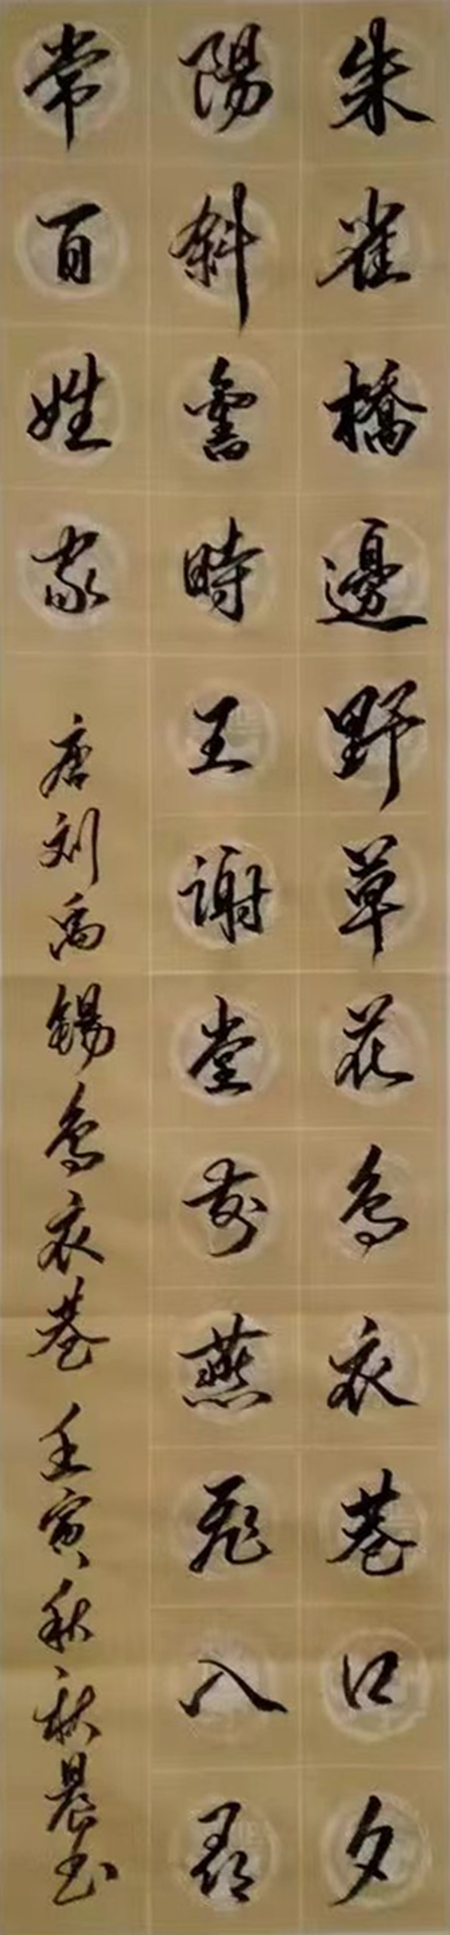 朱雀橋邊野草花烏衣巷口夕
陽斜舊時王謝堂前燕飛入尋
常百姓家 唐刘禹錫烏衣巷 壬寅秋秋晨书